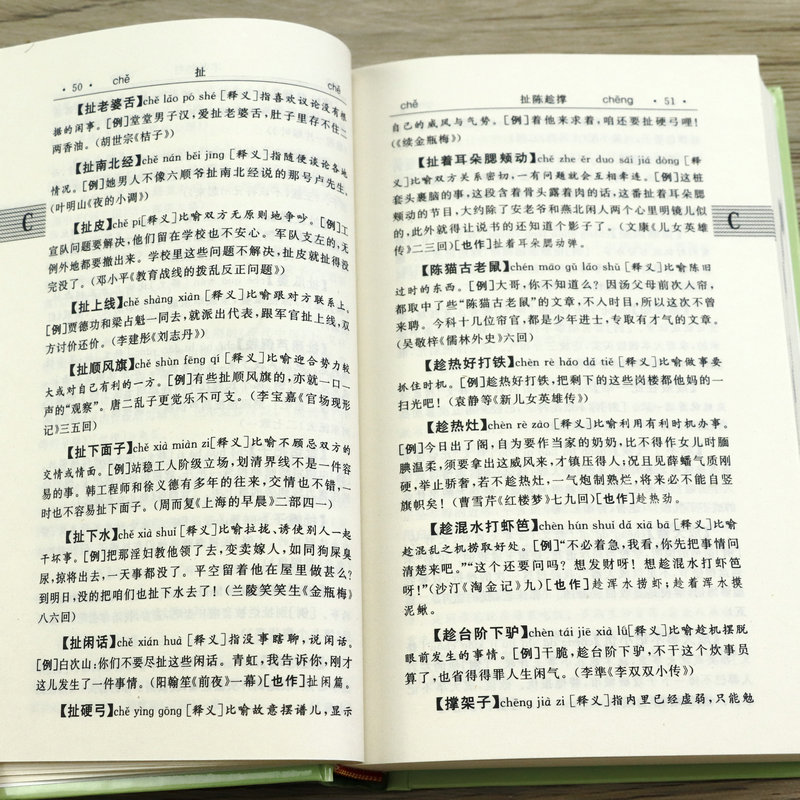 · 50 · chě 扯 chě
【扯老婆舌】chě lǎo pó shé [释义]指喜欢议论没有根
据的闲事。[例]堂堂男子汉，爱扯老婆舌，肚子里存不住二
两香油。(胡世宗《桔子》)
【扯南北经】chě nán běi jīng [释义]指随便谈论各地
情况。[例]她男人不像六顺爷扯南北经说的那号卢先生，
(叶明山《夜的小调》)
【扯皮】chě pí[释义]比喻双方无原则地争吵。[例]工
宣队问题要解决，他们留在学校也不安心。军队支左的，无
例外地都要撤出来。学校里这些问题不解决，扯皮就扯得没
完没了。(邓小平《教育战线的拨乱反正问题》)
【扯上线】chě shàng xiàn [释义]比喻跟对方联系上。
[例]贾德功和梁占魁一同去，就派出代表，跟军官扯上线，双
方讨价还价。(李建彤《刘志丹》)
【扯顺风旗】chě shùn fēng qí [释义]比喻迎合势力较
大或对自己有利的一方。[例]有些扯顺风旗的，亦就一口一
声的“观察”。唐二乱子更觉乐不可支。(李宝嘉《官场现形
记》三五回)
【扯下面子】chě xià miàn zi[释义]比喻不顾忌双方的
交情或情面。[例]站稳工人阶级立场，划清界线不是一件容
易的事。韩工程师和徐义德有多年的往来，交情也不错，一
时也不容易扯下面子。(周而复《上海的早晨》二部四一)
【扯下水】chě xià shuǐ [释义]比喻拉拢、诱使别人一起
干坏事。[例]把那淫妇教他领了去，变卖嫁人，如同狗屎臭
尿，掠将出去，一天事都没了。平空留着他在屋里做甚么？
到明日，没的把咱们也扯下水去了！(兰陵笑笑生《金瓶梅》
八六回)
【扯闲话】chě xián huà [释义]指没事瞎聊，说闲话。
[例]白次山：你们不要尽扯这些闲话。青虹，我告诉你，刚才
这儿发生了一件事情。(阳翰笙《前夜》一幕)[也作]扯闲篇。
【扯硬弓】chě yìng gōng [释义]比喻故意摆谱儿，显示
chě 扯陈趁撑 chēng · 51 ·
自己的威风与气势。[例]着他来求着，咱还要扯硬弓哩！
(《续金瓶梅》)
【扯着耳朵腮颊动】chě zhe ěr duo sāi jiá dòng [释
义]比喻双方关系密切，一有问题就会互相牵连。[例]这桩
套头裹脑的事，这段含着骨头露着肉的话，这番扯着耳朵腮
颊动的节目，大约除了安老爷和燕北闲人两个心里明镜儿似
的，此外就得让说书的还知道个影子了。(文康《儿女英雄
传》二三回)[也作]扯着耳朵腮帮弹。
【陈猫古老鼠】chén māo gǔ lǎo shǔ [释义]比喻陈旧
过时的东西。[例]大哥，你不知道么？因汤父母前次入帘，
都取中了些“陈猫古老鼠”的文章，不入时目，所以这次不曾
来聘。今科十几位帘官，都是少年进士，专取有才气的文章。
(吴敬梓《儒林外史》六回)
【趁热好打铁】chèn rè hǎo dǎ tiě [释义]比喻做事要
抓住时机。[例]趁热好打铁，把剩下的这些岗楼都他妈的一
扫光吧！(袁静等《新儿女英雄传》)
【趁热灶】chèn rè zào [释义]比喻利用有利时机办事。
[例]今日出了阁，自为要作当家的奶奶，比不得作女儿时腼
腆温柔，须要拿出这威风来，才镇压得人；况且见薛蟠气质刚
硬，举止骄奢，若不趁热灶，一气炮制熟烂，将来必不能自竖
旗帜矣！(曹雪芹《红楼梦》七九回)[也作]趁热劲。
【趁混水打虾笆】chèn hún shuǐ dǎ xiā bā [释义]比喻
趁混乱之机捞取好处。[例]“不必着急，我看，你先把事情问
清楚来吧。”“这个还要问吗？想发财呀！想趁混水打虾笆
呀！”(沙汀《淘金记》九)[也作]趁浑水捞虾；趁着浑水摸
泥鳅。
【趁台阶下驴】chèn tái jiē xià lǘ[释义]比喻趁机摆脱
眼前发生的事情。[例]干脆，趁台阶下驴，不干这个炊事员
算了，也省得得罪人生闲气。(李準《李双双小传》)
【撑架子】chēng jià zi [释义]指内里已经虚弱，只能勉
C
C